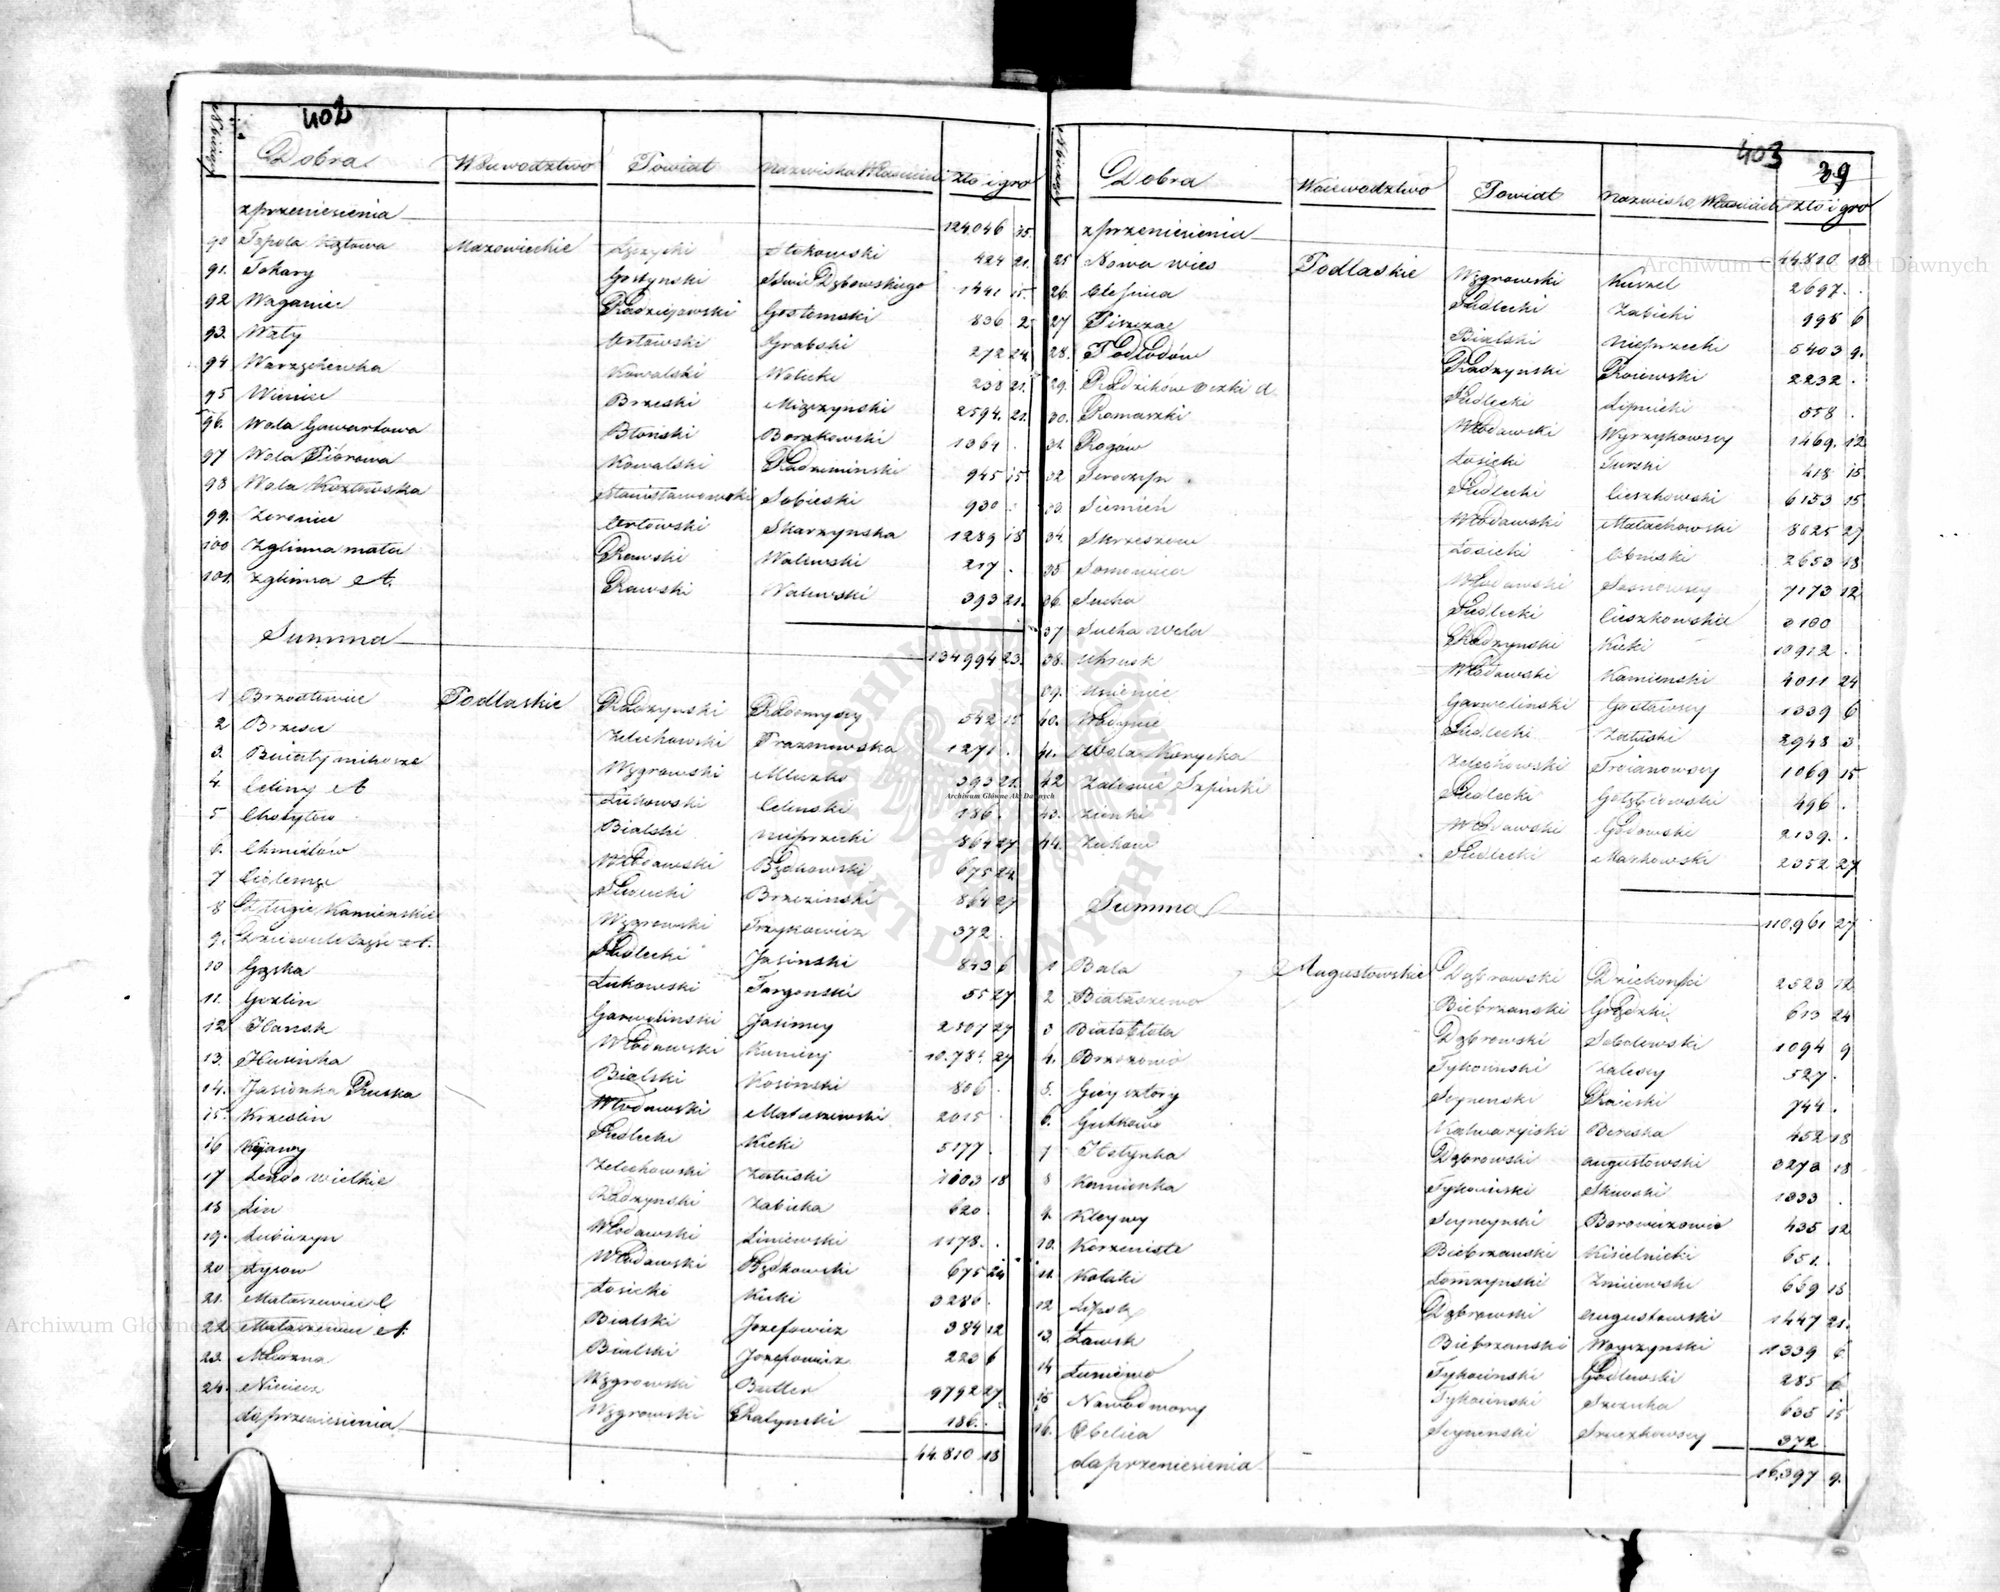 402
N bieżący Dobra Woiewodztwo Powiat Nazwiska Właścicieli zło i gro
z przeniesienia 124046 15.
90 Topola Mazowieckie Łęczycki Stokowski 424 21.
91. Tokary Gostynski Dąbowskiego 1441 15.
92 Waganiec Radziejowski Gostomski 836 2
93. Wały Orłowski Grabski 272 24.
94 Warząchewka Kowalski Wolicki 238 21.
95 Wieniec Brzeski Miączynski 2594. 21.
96. Wola Gowartowa Błoński Borakowski 1364 .
97 Wola Piórowa Kowalski Radziminski 945 15
98 Wola Kozłowska Stanisławowski Sobieski 930
99. Zeronice Orłowski Skarzynska 1289 18
100 Zglinna mała Rawski Walewski 217 .
101. Zglinna A. Rawski Walewski 393 21.
Summa 134994 23.
1 Brzostowiec Podlaskie Radzynski Radomyscy 542 15
2 Brzesce Zelechowski Prazmowska 1271 .
3. Buiały mikosze Węgrowski Mleczko 393 21.
4. Celiny A Łukowski Celinski 186.
5 Chotyłow Bialski Nieprzecki 864 27
6. Chmielów Włodawski Bądkowski 675 24
7 Ciolemge Siedlecki Brzezinski 864 27
8 Długie Kamienskie Węgrowski Trzykowicz 372 .
9. Dziewule część A. Siedlecki Jasinski 843 6
10 Gąska Łukowski Targonski 55 27
11. Gozlin Garwolinski Jasimcy 2107 27
12 Hansk Włodawski Kunicy 10.78 27
13. Husinka Bialski Kosinski 806
14. Jasionka Ruska Włodawski Mataszewski 2015
15. Krzeslin Siedlecki Kicki 5177 .
16 Kijawy Zelechowski Załuski 1003 18
17 Lendo wielkie Radzynski Zabicka 620
18 Lin Włodawski Liniewski 1178. .
19. Lubiczyn Włodawski Bądkowski 675 24
20 Łysow Łosicki Kicki 3286 .
21. Mataszewice C Bialski Jozefowicz 384 12
22 Mataszewice A. Bialski Jozefowicz 223 6
23. Miedzna Węgrowski Butler 9792 27
24. Nieciecz Węgrowski Ratynski 186.
do przeniesienia 44.810 18
403
39
N bieżący Dobra Woiewodztwo Powiat Nazwisko Właściciela zło i gro
z przeniesienia 44.810 18
25 Nowa wies Podlaskie Węgrowski Kuszel 2697. .
26. Olesnica Siedlecki Zabicki 995 6
27 Piszczac Bialski Nieprzecki 5403 9.
28. Podlodów Radzynski Roiewski 2232 .
29. Radzików oczki A. Siedlecki Lipnicki 558 .
30. Romaszki Włodawski Wyrzykowscy 1469. 12
31. Rogów Łosicki Turski 418 15
32 Seroczyn Siedlecki Cieszkowski 6153 15
33 Siemień Włodawski Małachowski 8625 27
34. Skrzeszew Łosicki Obniski 2653 18
35 Sosnowica Włodawski Sosnowscy 7173 12
36. Sucha Siedlecki Cieszkowskie 3100
37 Sucha wola Radzynski Kicki 10912 .
38. Uhrusk Włodawski Kamienski 4011 24
39. Unieniec Garwolinski Gostawscy 1339 6
40. Wodynie Siedlecki Załuski 2948 3
41. Wola Korycka Zelechowski Troianowscy 1069 15
42 Zalewie Szpinki Siedlecki Gołębiowski 496 .
43. Zienki Włodawski Godowski 2139. .
44. Zuków Siedlecki Markowski 2352 27
Summa 110.961 27
1 Bala Augustowskie Dąbrowski Dziekonski 2523 12
2 Białaszewo Biebrzanski Grądzki 613 24
3 Białobłota Dąbrowski Sobolewski 1094 9
4. Brzozowo Tykocinski Zalescy 527 .
5. Giey sztory Seynenski Raieski 744 .
6. Gutkowo Kalwaryiski Bereska 452 18
7 Hołynka Dąbrowski Augustowski 3273 18
8 Kamionka Tykocinski Skuwski 1333 .
9. Kleywy Seynenski Borowiczowie 435 12
10. Korzeniste Biebrzanski Kisielnicki 651.
11. Kołaki Łomzynski Zmiiewski 659 15
12 Lipsk Dąbrowski Augustowski 1447 21.
13. Ławsk Biebrzanski Woyczynski 1339 6
14 Łuniewo Tykocinski Godlewski 285 6
15 Nowodwory Tykocinski Szczuka 635 15
16. Obelica Seynenski Sruczkowscy 372
do przeniesienia 16,397 9.
Archiwum Główne Akt Dawnych
Archiwum Główne Akt Dawnych
Archiwum Główne Akt Dawnych